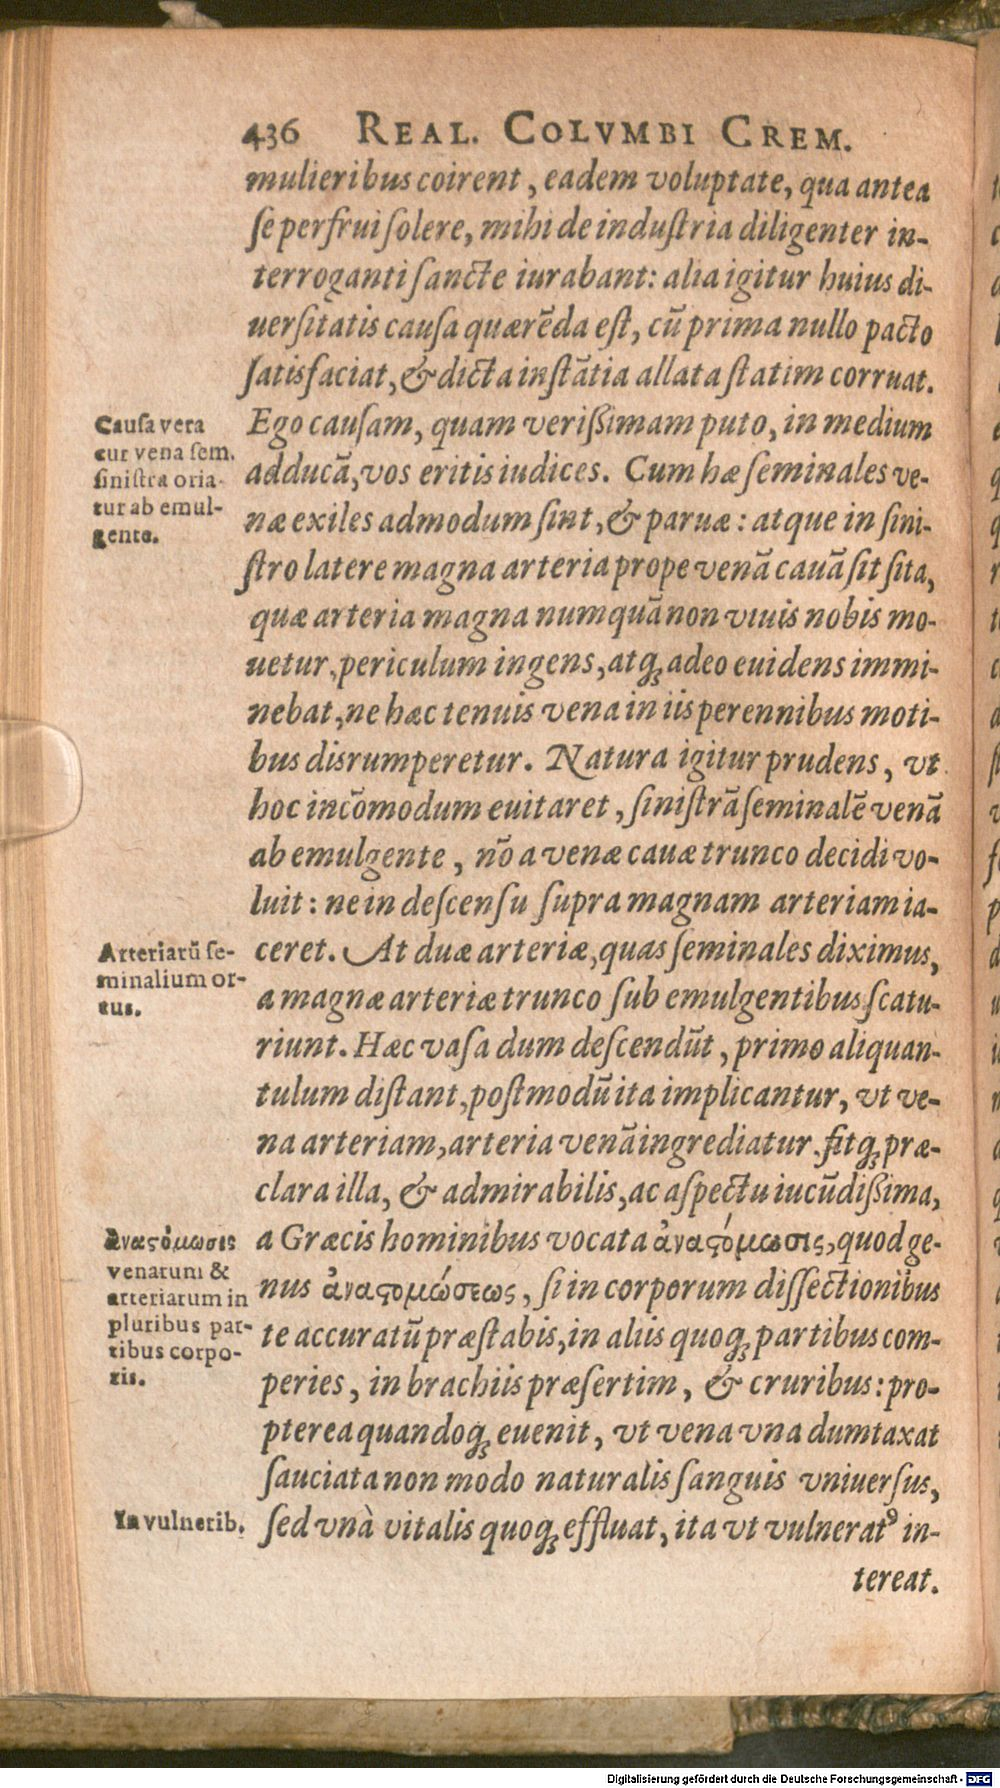 436 REAL. COLVMBI CREM.
mulieribus coirent, eadem voluptate, qua antea
se perfrui solere, mihi de industria diligenter in-
terroganti sancte iurabant: alia igitur huius di-
uersitatis causa quærēda est, cū prima nullo pacto
satisfaciat, & dicta instātia allata statim corruat.
Ego causam, quam verißimam puto, in medium
adducā, vos eritis iudices. Cum hæ seminales ve-
næ exiles admodum sint, & paruæ: atque in sini-
stro latere magna arteria prope venā cauā sit sita,
quæ arteria magna numquā non viuis nobis mo-
uetur, periculum ingens, atq; adeo euidens immi-
nebat, ne hæc tenuis vena in iis perennibus moti-
bus disrumperetur. Natura igitur prudens, vt
hoc incōmodum euitaret, sinistrā seminalē venā
ab emulgente, nō a venæ cauæ trunco decidi vo-
luit: ne in descensu supra magnam arteriam ia-
ceret. At duæ arteriæ, quas seminales diximus,
a magnæ arteriæ trunco sub emulgentibus scatu-
riunt. Hæc vasa dum descendūt, primo aliquan-
tulum distant, postmodū ita implicantur, vt ve-
na arteriam, arteria venā ingrediatur. fitq; præ-
clara illa, & admirabilis, ac aspectu iucūdißima,
a Græcis hominibus vocata ἀναςόμωσις, quod ge-
nus ἀναςομώσεως, si in corporum dissectionibus
te accuratū præstabis, in aliis quoq; partibus com-
peries, in brachiis præsertim, & cruribus: pro-
pterea quandoq; euenit, vt vena vna dumtaxat
sauciata non modo naturalis sanguis vniuersus,
sed vnà vitalis quoq; effluat, ita vt vulneratꝰ in-
tereat.
Causa vera
cur vena sem.
sinistra oria-
tur ab emul-
gente.
Arteriarū se-
minalium or-
tus.
ἀναςόμωσις
venarum &
arteriarum in
pluribus par-
tibus corpo-
ris.
In vulnerib.
Digitalisierung gefördert durch die Deutsche Forschungsgemeinschaft - DFG